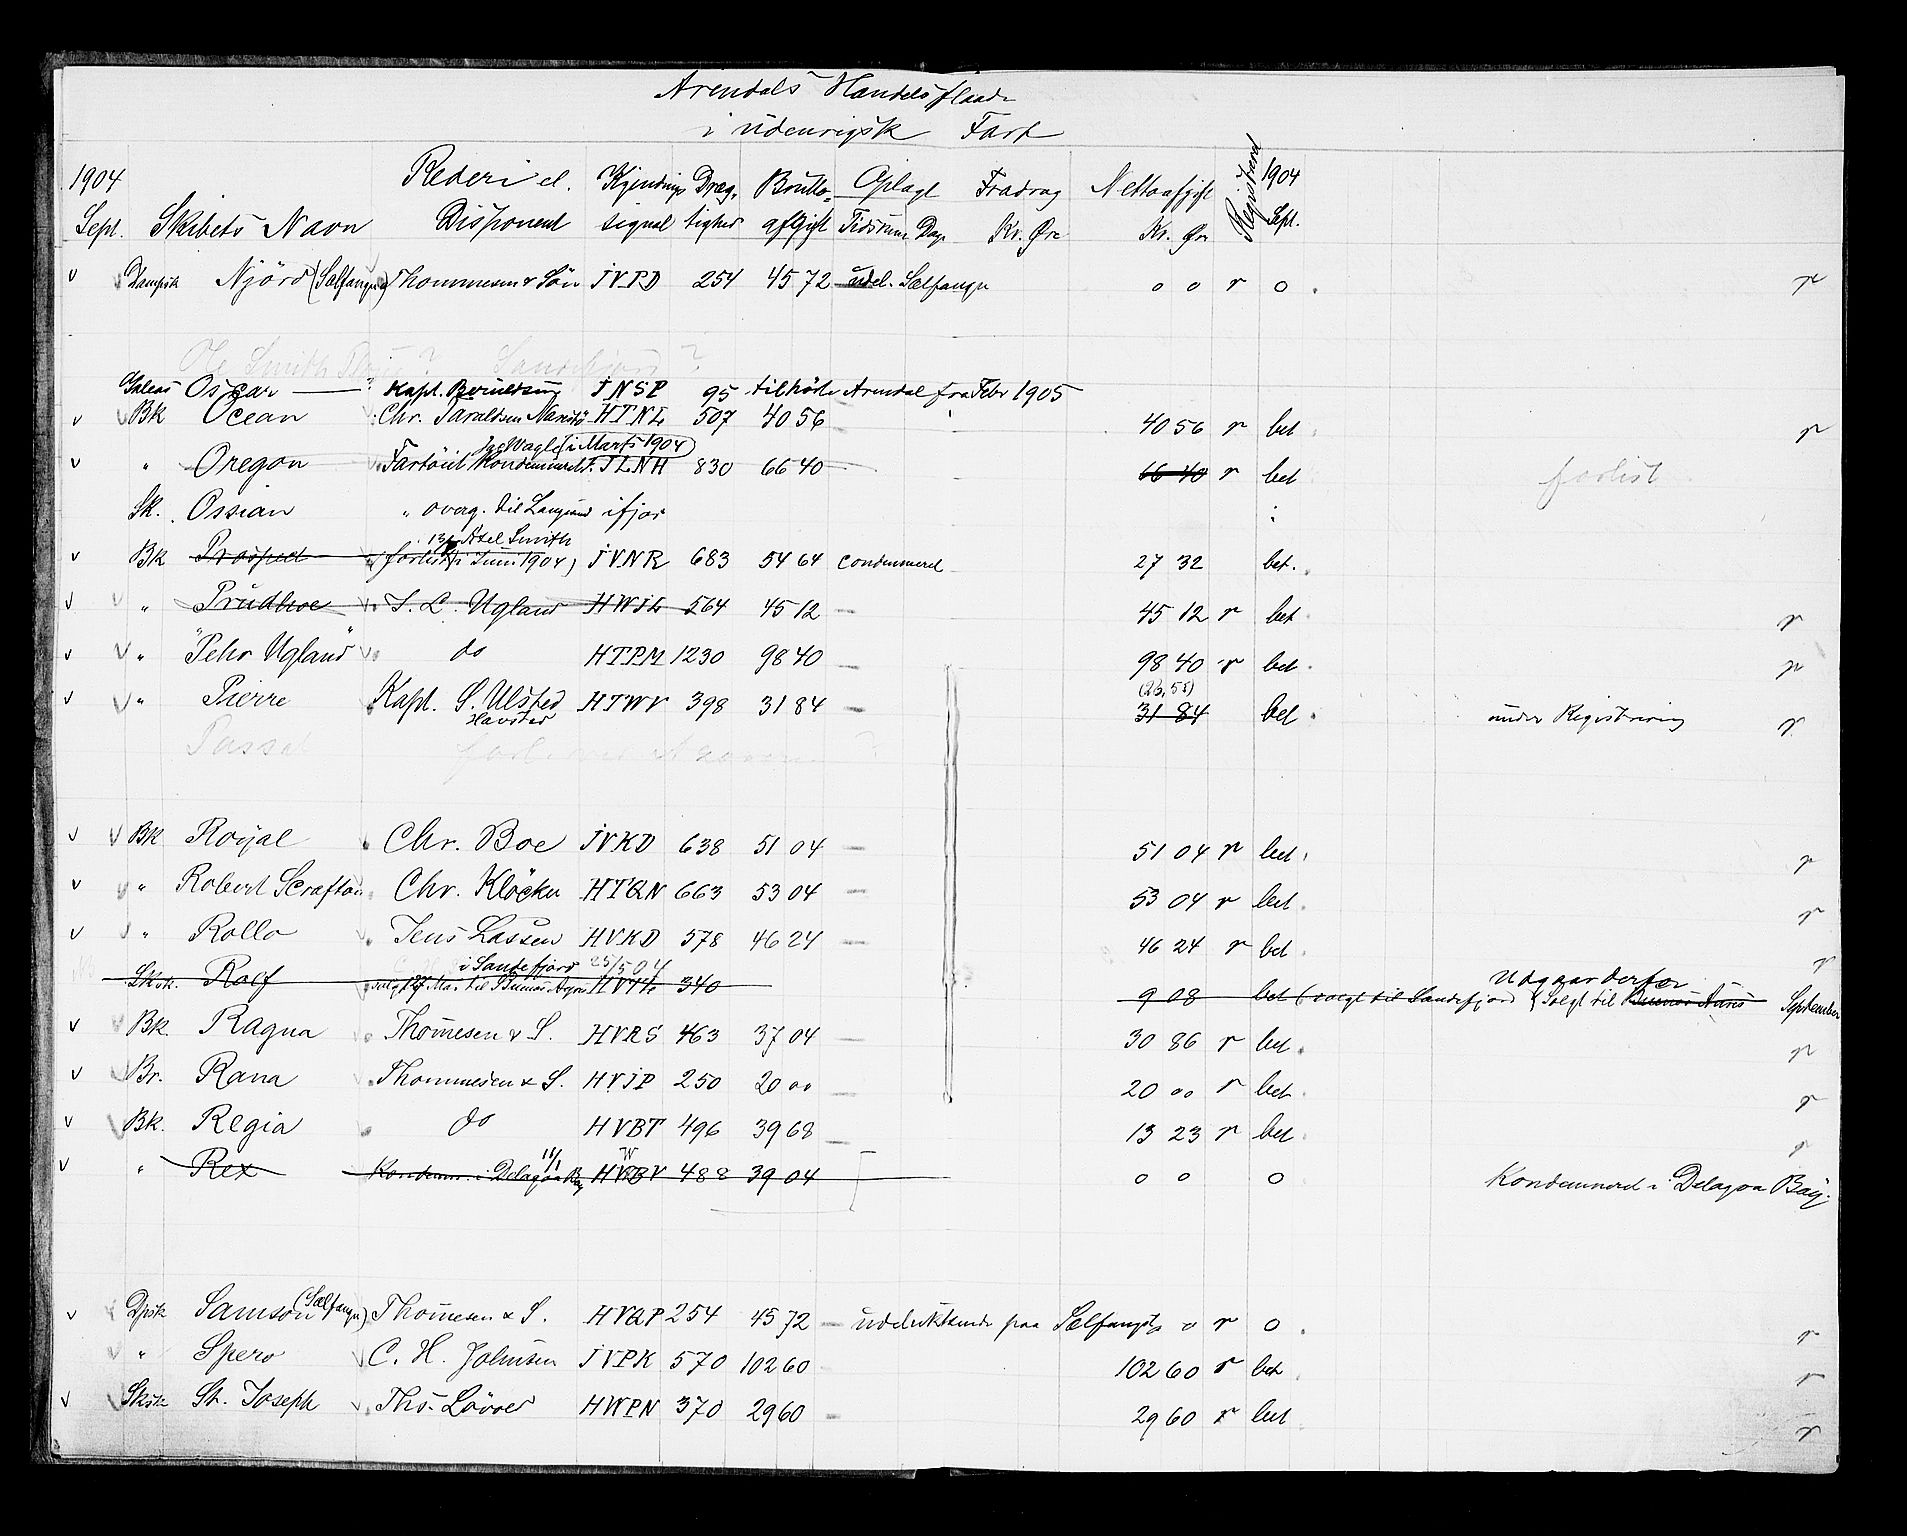 Arendals Handelsflaade
i udenrigsk Fart
1904 Rederi el. Kjendings Dræg. Brutto- Oplagt Fradrag Nettoafgift Registrered 1904
Sept. Skibets Navn Disponent signal tighed afgift Tidsrum Dage Kr. Øre Kr. Øre Sept.
v Dampsk Njörd (Sælfanger) Thommesen & Sön JVPD 254 45 72 udel. Sælfanger 0 0 r 0 r
Ole Smith ? Sandefjord ?
Galeas Oscar ? Kapt. JNSP 95 tilhörte Arendal fra Febr 1905
v Bk Ocean Chr. Taraldsen Narestö HTNL 507 40 56 40 56 r bet r
i Marts 1904
v " Oregon Fartöiet Kondemneret JLNH 830 66 40 66 40 r bet forlist
Sk. Ossian " overg. til Langesund ifjor
Axel Smith
v Bk Prosped (forlist i Juni 1904) JVNR 683 54 64 condemnered 27 32 bet.
v " Prudhoe T. L. Ugland HWJL 564 45 12 45 12 r bet r
v " "Pehr Ugland" do HTPM 1230 98 40 98 40 r bet r
(23,55)
v " Pierre Kapt. S. Ulsted HTWV 398 31 84 31 84 bet under Registrering r
Havsted
Passat forl. ?
v Bk Royal Chr. Boe JVKD 638 51 04 51 04 r bet r
v " Robert Scrafton Chr. Klöcker HTQN 663 53 04 53 04 r bet r
v " Rollo Jens Lassen HVKD 578 46 24 46 24 r bet r
i Sandefjord 25/5 04 Udgaar derfor
Sksk. Rolf solgt 17 Mai til Buenos Ayres 340 9 08 bet (solgt til Sandefjord) (Solgt til Buenos Aires September
v Bk. Ragna Thommesen & S. HVRS 463 37 04 30 86 r bet r
v Br. Rana Thommesen & S. HVJP 250 20 00 20 00 r bet r
v Bk. Regia do HVBT 496 39 68 13 23 r bet r
11/1 W
v " Rex Kondemn. i Delagoa Bay HVBV 488 39 04 0 0 0 Kondemnered i Delagoa Bay.
v Dpsk Samson (Sælfanger) Thommesen & S. HVQP 254 45 72 udelukkende paa Sælfangst 0 0 r 0 r
" Spero C. H. Johnsen JVPK 570 102 60 102 60 r bet r
v Sksk St. Joseph Ths. Lövold HWPN 370 29 60 29 60 r bet r